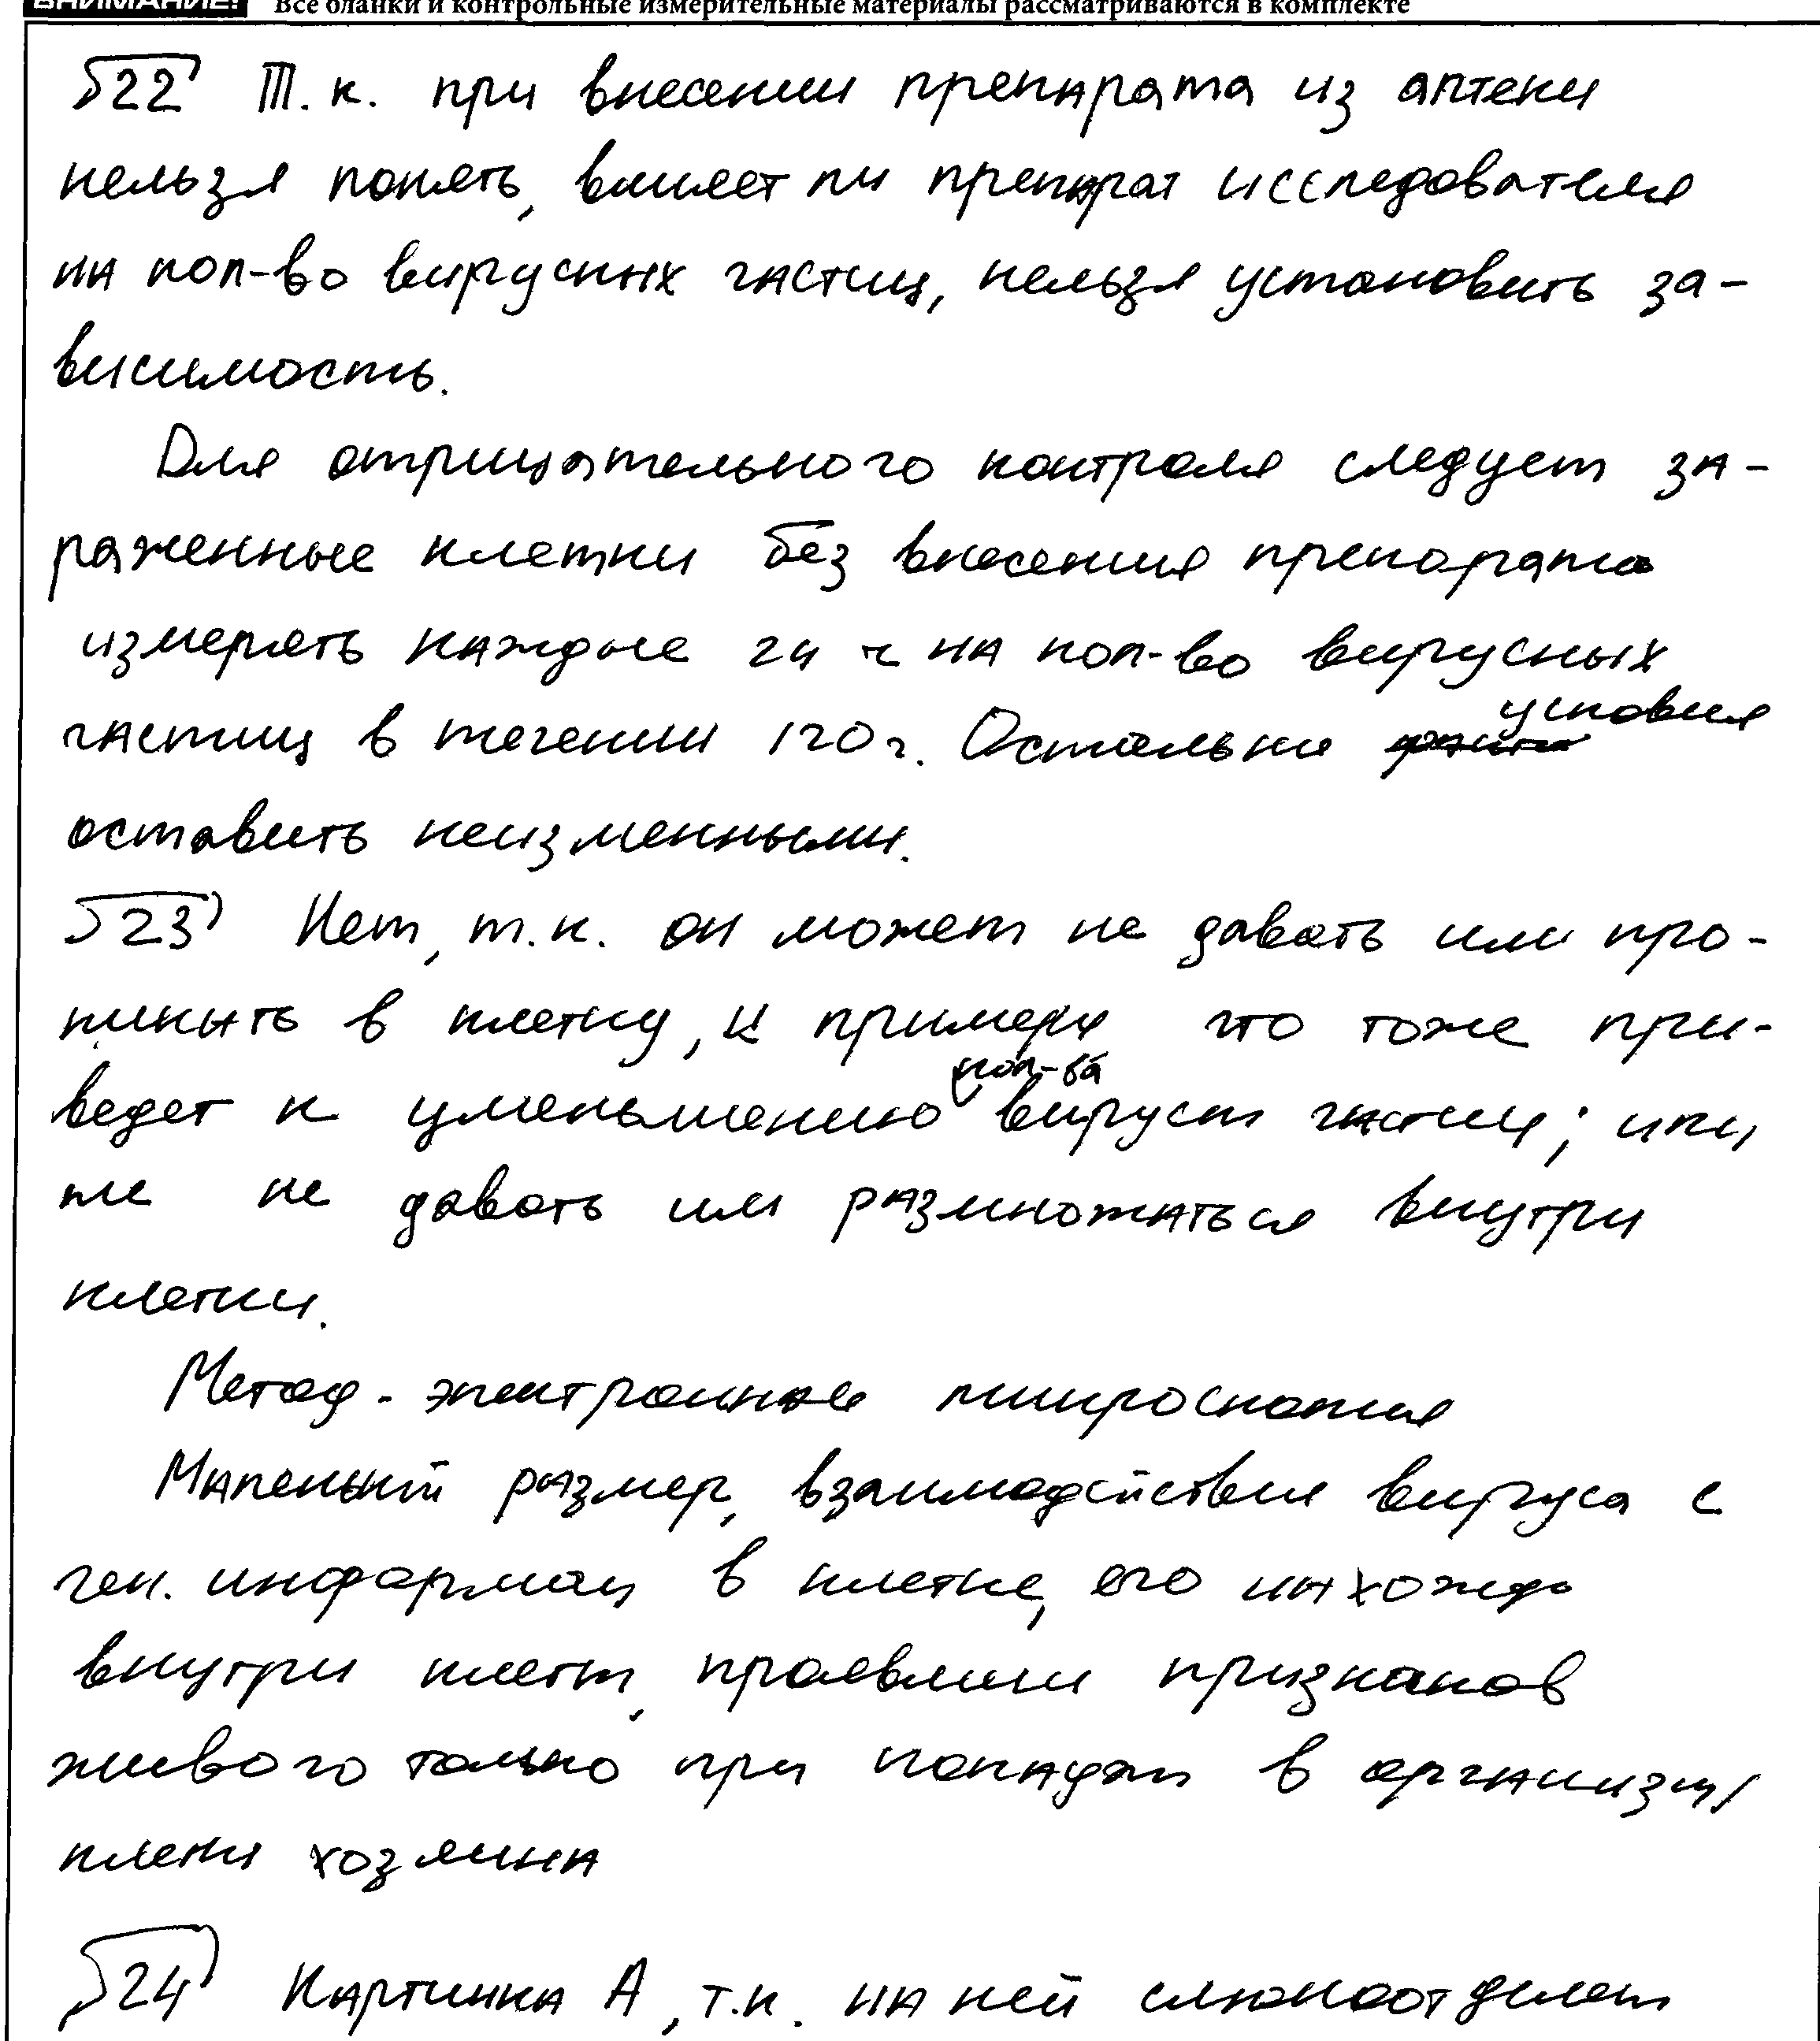 ВНИМАНИЕ! Все бланки и контрольные измерительные материалы рассматриваются в комплекте
22 Т.к. при внесении препарата из аптеки
нельзя понять, влияет ли препарат исследователя
на кол-во вирусных частиц, нельзя установить за-
висимость.
Для отрицательного контроля следует за-
раженные клетки без внесения препарата
измерять каждые 24 ч на кол-во вирусных
частиц в течении 120 ч. Остальные условия
оставить неизменными.
23 Нет, т.к. он может не давать им про-
никать в клетку, к примеру что тоже при-
ведет к уменьшению кол-ва вирусн частиц; или
же не давать им размножаться внутри
клетки.
Метод - электронная микроскопия
Маленький размер, взаимодействие вируса с
ген. информац в клетке, его нахожде
внутри клетк, проявлени признаков
живого только при попадан в организм/
клетки хозяина
24 Картинка А, т.к. на ней слюноотделен